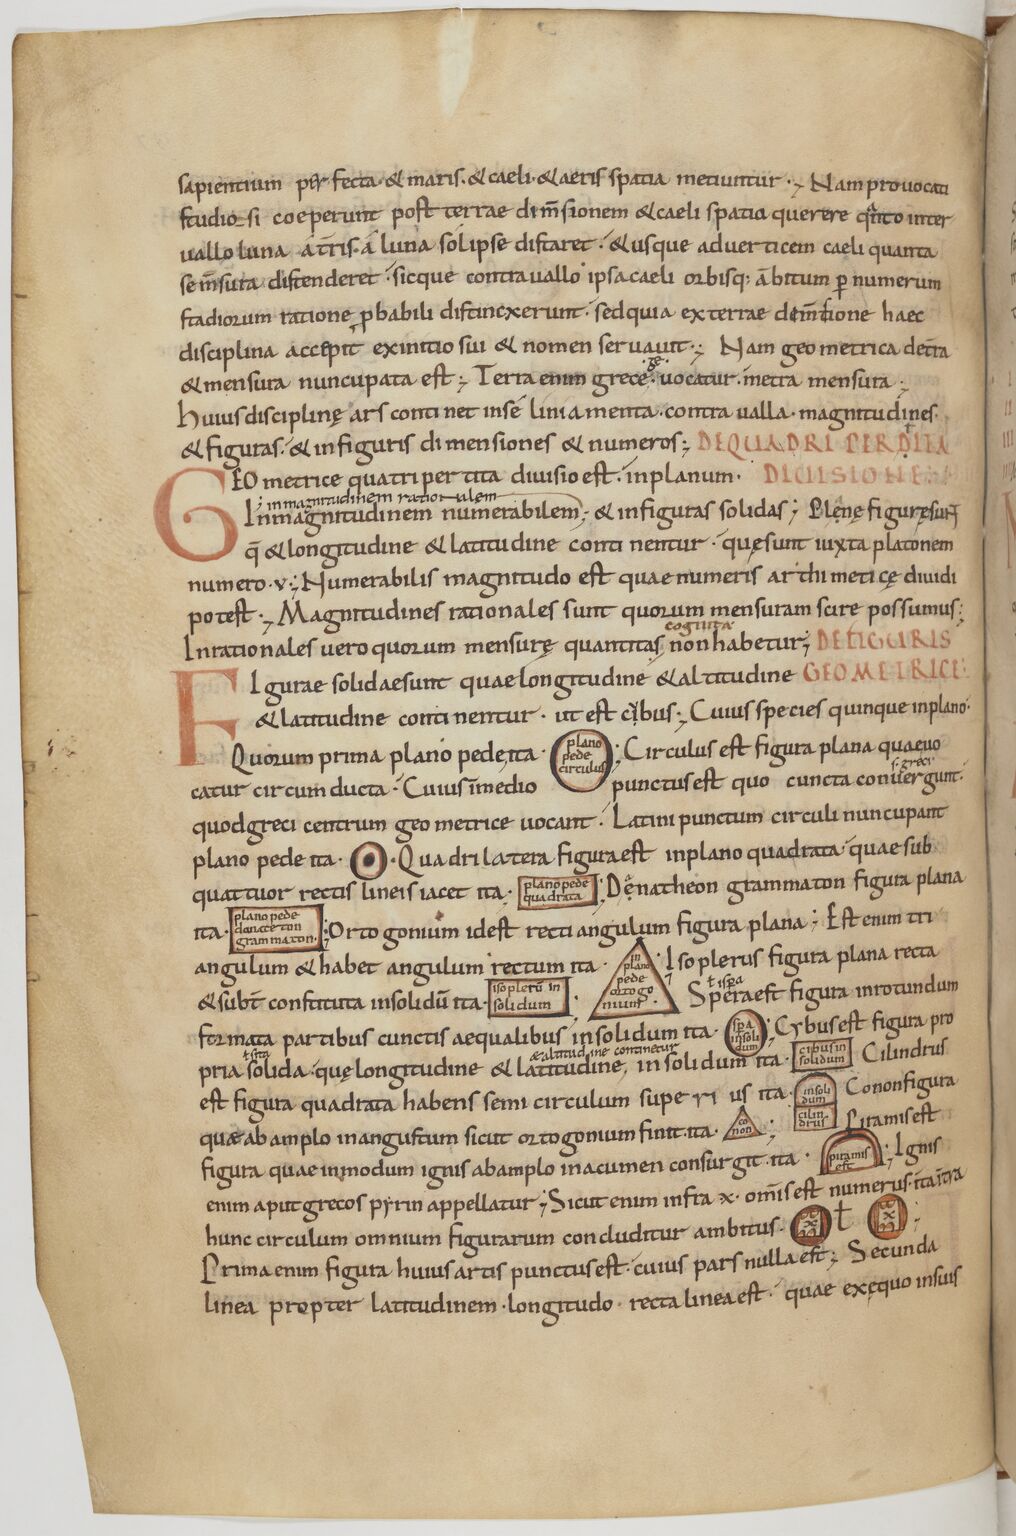 sapientium perfecta · & maris · & caeli · & aeris spatia metiuntur · Nam provocati
studio si coeperunt post terrae dim̄sionem & caeli spatia querere qᷓnto inter
uallo luna a tr̄is · a luna sol ipse distaret · & usque ad uerticem caeli quanta
se m̄sura distenderet · sicque contra uallo ipsa caeli orbisq; ābitum p̲ numerum
stadiorum ratione p̲babili distincxerunt · sed quia ex terrae dem̄sione haec
disciplina accepit ex initio sui & nomen seruauit · Nam geometrica de tr̄a
& mensura nuncupata est ; Terra enim grece · ge · uocatur · metra mensura ·
huius disciplinę ars continet in se liniamenta · contra ualla · magnitudines
& figuras · & in figuris dimensiones & numeros ; DE QUADRIPERDITA
GEOmetrice quatripertita diuisio est · in planum · DIUISIONE
in magnitudinem rationalem
In magnitudinem numerabilem ; & in figuras solidas ; Plęnę figurę sunt
q̄ & longitudine & latitudine continentur · quę sunt iuxta platonem
numero · v · ; Numerabilis magnitudo est quae numeris arthimeticę diuidi
potest · ; Magnitudines rationales sunt quorum mensuram scire possumus ;
cognita
Inrationales uero quorum mensurę quantitas non habetur ; DE FIGURIS
FIgurae solidae sunt quae longitudine & altitudine GEOMETRICE
& latitudine continentur · ut est cybus ; Cuius species quinque in plano ·
Quorum prima plano pede ita · plano pede circulus ; Circulus est figura plana quae uo
catur circumducta · Cuius in medio punctus est quo cuncta conuergunt · s · greci
quod greci centrum geometrice uocant · Latini punctum circuli nuncupant
plano pede ita · Quadrilatera figura est in plano quadrata · quae sub
quattuor rectis lineis iacet ita · plano pede quadrata ; Denatheon grammaton figura plana
ita · plano pede grammaton · ; Ortogonium id est rectiangulum figura plana ; Est enim tri
angulum & habet angulum rectum ita · in plano pede ortogo nium ; Isoplerus figura plana recta
& subt̄ constituta in solidū ita · isoplerū in solidum · Spera est figura in rotundum
formata partibus cunctis aequalibus in solidum ita · spera in soli dum ; Cybus est figura pro
& altitudine continetur
pria solida · quę longitudine & latitudine, in solidum ita · cibus in solidum Cilindrus
est figura quadrata habens semicirculum superius ita · in soli dum cilin drus Conon figura
quae ab amplo in angustum sicut ortogonium finit · ita · co non ; Piramis est
figura quae in modum ignis ab amplo in acumen consurgit · ita · piramis est ; Ignis
enim aput grecos pyrin appellatur ; Sicut enim infra x · om̄is est numerus · ita intra
hunc circulum omnium figurarum concluditur ambitus · x ł x ;
Prima enim figura huius artis punctus est · cuius pars nulla est ; Secunda
linea propter latitudinem · longitudo · recta linea est · quae ex ęquo in suis